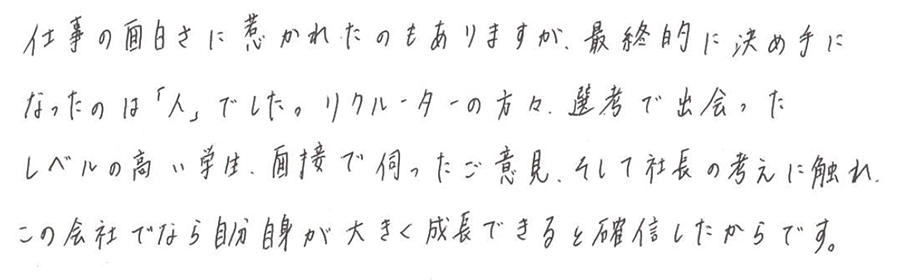 仕事の面白さに惹かれたのもありますが、最終的に決め手に
なったのは「人」でした。リクルーターの方々、選考で出会った
レベルの高い学生、面接で伺ったご意見、そして社長の考えに触れ、
この会社でなら自分自身が大きく成長できると確信したからです。